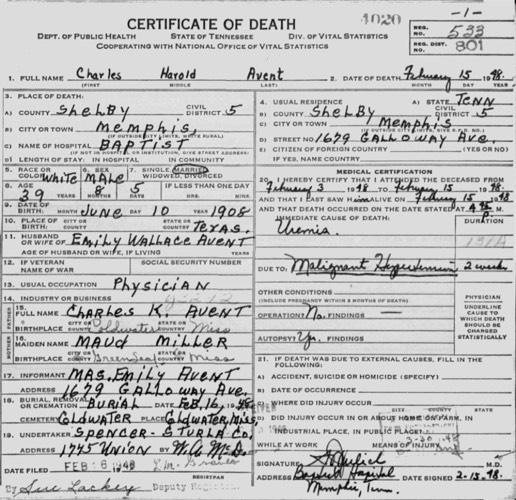 4020
-1-
REG. NO. 533
REG. DIST. 801
CERTIFICATE OF DEATH
DEPT. OF PUBLIC HEALTH STATE OF TENNESSEE DIV. OF VITAL STATISTICS
COOPERATING WITH NATIONAL OFFICE OF VITAL STATISTICS
1. FULL NAME Charles Harold Avent
(FIRST) MIDDLE (LAST)
2. DATE OF DEATH February 15 1948.
MONTH DAY YEAR
3. PLACE OF DEATH:
A) COUNTY ShELBY CIVIL DISTRICT 5
B) CITY OR TOWN Memphis,
(IF OUTSIDE CITY LIMITS, WRITE RURAL)
C) NAME OF HOSPITAL BAPTIST
(IF NOT IN HOSPITAL OR INSTITUTION, GIVE STREET ADDRESS)
D) LENGTH OF STAY: IN HOSPITAL IN COMMUNITY
4. USUAL RESIDENCE A) STATE TENN
B) COUNTY ShELBY CIVIL DISTRICT 5
C) CITY OR TOWN MEMPHIS
D) STREET NO. 1679 GALLOWAY AVE.
E) CITIZEN OF FOREIGN COUNTRY (YES OR NO)
IF YES, NAME COUNTRY
5. RACE OR COLOR White 6. SEX MALE 7. SINGLE, MARRIED, WIDOWED, DIVORCED
8. AGE 39 YEARS 8 MONTHS 5 DAYS IF LESS THAN ONE DAY
HRS. MIN.
9. DATE OF BIRTH: MONTH JUNE DAY 10 YEAR 1908
10. PLACE OF BIRTH CITY OR TOWN COUNTY STATE OR COUNTRY Texas.
11. HUSBAND OR WIFE OF EMILY WALLACE AVENT
AGE OF HUSBAND OR WIFE, IF LIVING YEARS
12. IF VETERAN NAME OF WAR SOCIAL SECURITY NUMBER
13. USUAL OCCUPATION PHYSICIAN
14. INDUSTRY OR BUSINESS
FATHER 15. FULL NAME Charles K. AVENT
BIRTHPLACE CITY OR TOWN Coldwater COUNTY STATE OR COUNTRY Miss
MOTHER 16. MAIDEN NAME MAUD MILLER
BIRTHPLACE CITY OR TOWN COUNTY STATE OR COUNTRY Miss
17. INFORMANT MRS. Emily AVENT
ADDRESS 1679 GALLOWAY AVE.
18. BURIAL, REMOVAL OR CREMATION BURIAL DATE FEB. 16, 1948
CEMETERY COLDWATER PLACE COLDWATER, MISS
19. UNDERTAKER SPENCER-STURLA CO.
ADDRESS 1795 UNION BY
DATE FILED FEB 16 1948
Sue Lackey DEPUTY
REGISTRAR
MEDICAL CERTIFICATION
20. I HEREBY CERTIFY THAT I ATTENDED THE DECEASED FROM
February 3 1948 TO February 15 1948.
AND THAT I LAST SAW HIM ALIVE ON February 15 1948
AND THAT DEATH OCCURRED ON THE DATE STATED AT P.
IMMEDIATE CAUSE OF DEATH: DURATION
Uremia.
131A
DUE TO: Malignant Hypertension 2 weeks
OTHER CONDITIONS
(INCLUDE PREGNANCY WITHIN 3 MONTHS OF DEATH)
OPERATION? No. FINDINGS —
AUTOPSY? Yes. FINDINGS —
PHYSICIAN
UNDERLINE CAUSE TO WHICH DEATH SHOULD BE CHARGED STATISTICALLY
21. IF DEATH WAS DUE TO EXTERNAL CAUSES, FILL IN THE FOLLOWING:
A) ACCIDENT, SUICIDE OR HOMICIDE (SPECIFY)
B) DATE OF OCCURRENCE
C) WHERE DID INJURY OCCUR
D) DID INJURY OCCUR IN OR ABOUT HOME, ON FARM,
IN INDUSTRIAL PLACE, IN PUBLIC PLACE?
WHILE AT WORK MEANS OF INJURY
SIGNATURE
ADDRESS Baptist Hospital
Memphis, Tenn.
DATE SIGNED 2-15-48.